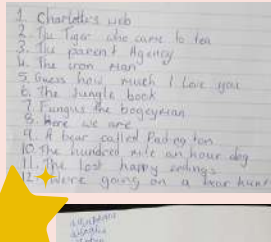 1. Charlotte's web
2. The Tiger who came to tea
3. The parent Agency
4. The iron man
5. Guess how much I Love you
6. The Jungle book
7. Fungus the bogeyman
8. Here we are
9. A bear called Pading ton
10. The hundred mile an hour dog
11. The lost happy endings
12. We're going on a bear hunt